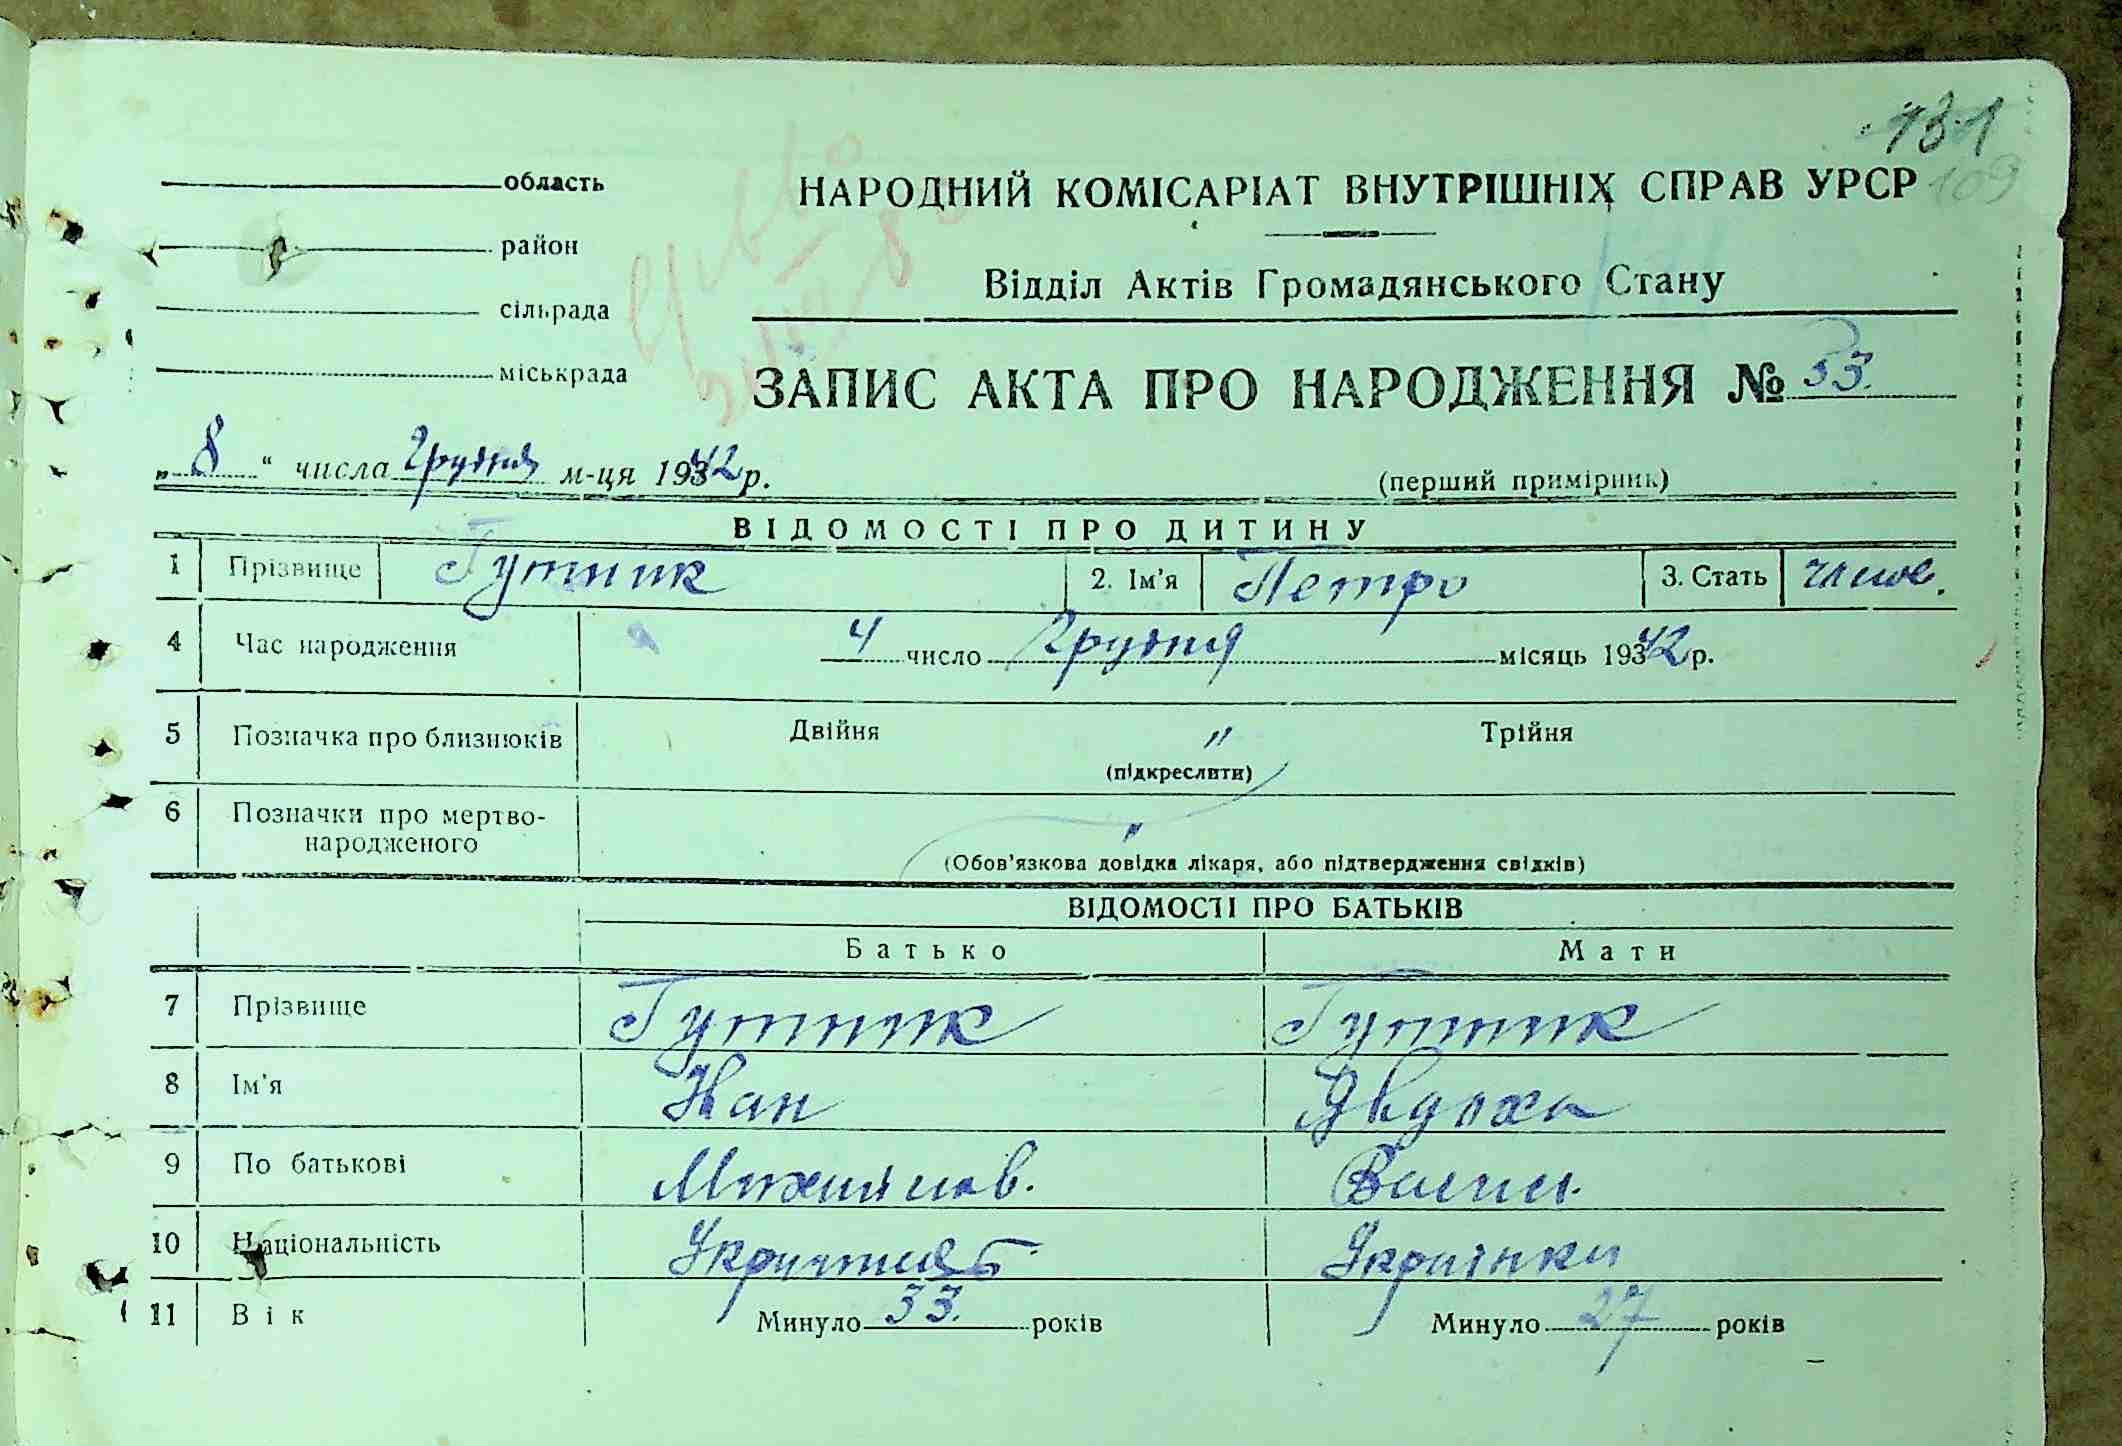 131
109
область
НАРОДНИЙ КОМІСАРІАТ ВНУТРІШНІХ СПРАВ УРСР
район
Відділ Актів Громадянського Стану
сільрада
міськрада
ЗАПИС АКТА ПРО НАРОДЖЕННЯ № 53.
„8“ числа Грудня м-ця 1942 р.
(перший примірник)
ВІДОМОСТІ ПРО ДИТИНУ
1 Прізвище Гутник 2. Ім'я Петро 3. Стать чолов.
4 Час народження 4 число Грудня місяць 1942 р.
5 Позначка про близнюків Двійня " Трійня
(підкреслити)
6 Позначки про мертво-
народженого "
(Обов'язкова довідка лікаря, або підтвердження свідків)
ВІДОМОСТІ ПРО БАТЬКІВ
Батько Мати
7 Прізвище Гутник Гутник
8 Ім'я Іван Явдоха
9 По батькові Михайлов. Васил.
10 Національність Українец Українка
11 Вік Минуло 33. років Минуло 27 років